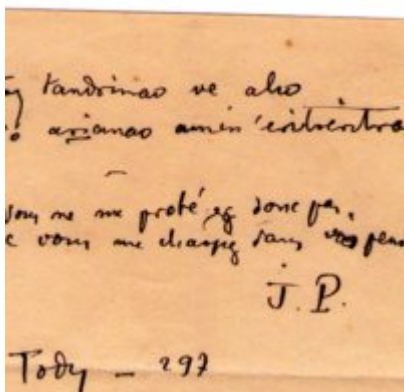 tandrimao ve aho
arianao amin' eritreritra
ne me proté eg donc pas,
vous me dans
J. P.
Tody — 297